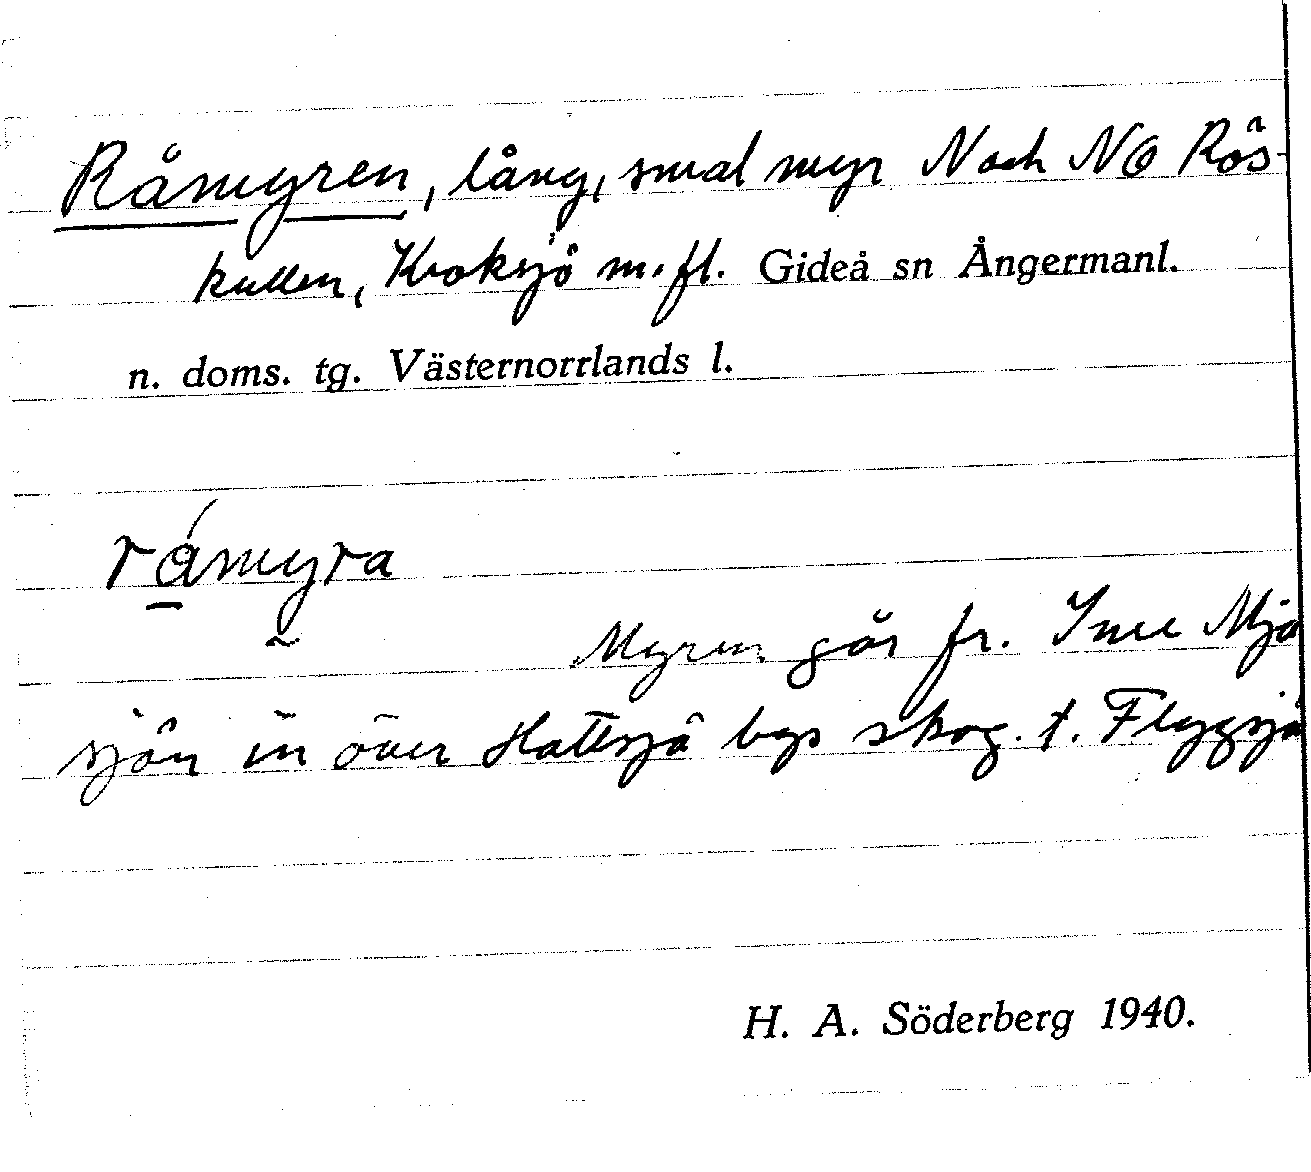 Råmyren, lång, smal myr N och NO Rös-
kullen, Kroksjö m.fl. Gideå sn Ångermanl.
n. doms. tg. Västernorrlands l.
råmyra
Myren går fr. Inre Mjö
sjön in över Hattsjö bys skog. t. Flyggsjö
H. A. Söderberg 1940.